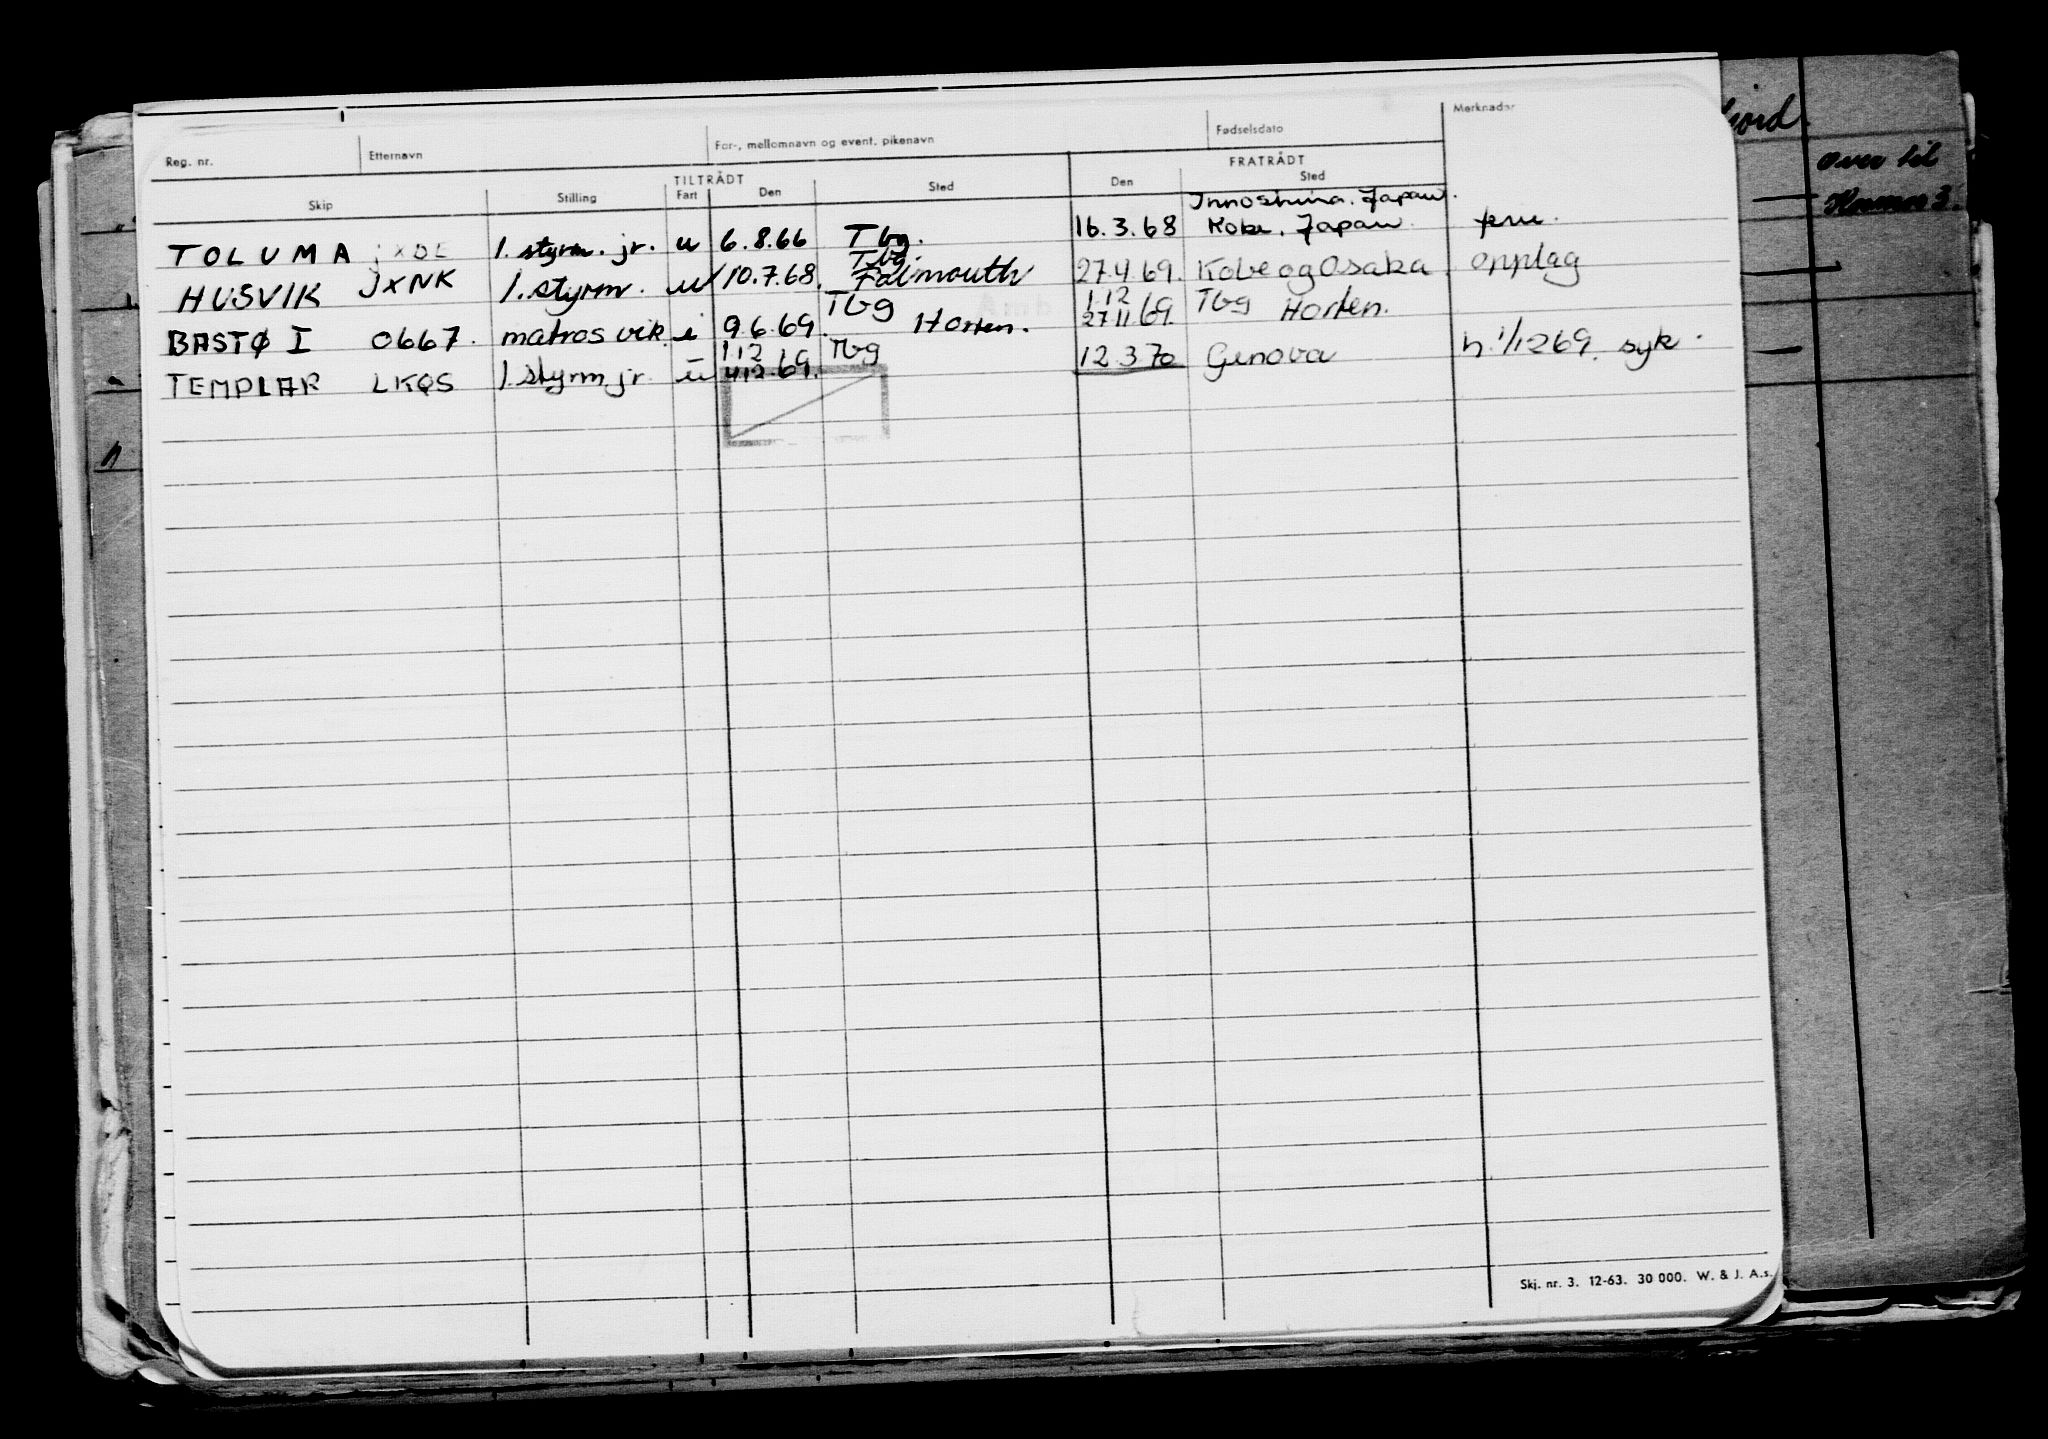 Reg. nr. Etternavn For-, mellomnavn og event. pikenavn Fødselsdato Merknader
TILTRÅDT FRATRÅDT
Skip Stilling Fart Den Sted Den Sted
Innoshima. Japan.
TOLUMA 1. styrm. jr. u 6.8.66 Tbg. 16.3.68 Kobe. Japan
Tbg.
HUSVIK JXNK 1. styrm. u 10.7.68. Falmouth 27.4.69. Kobe og Osaka opplag
Tbg 1.12 Tbg
BASTØ I 0667. matros vik. i 9.6.69. Horten. 27.11.69. Horten.
1.12 Tbg
TEMPLAR LKQS 1. styrm jr. u 4.12.69. 12.3.70 Genova h. 1/12 69. syk.
jord.
over til
3.
Skj. nr. 3. 12-63. 30 000. W. & J. A.s.